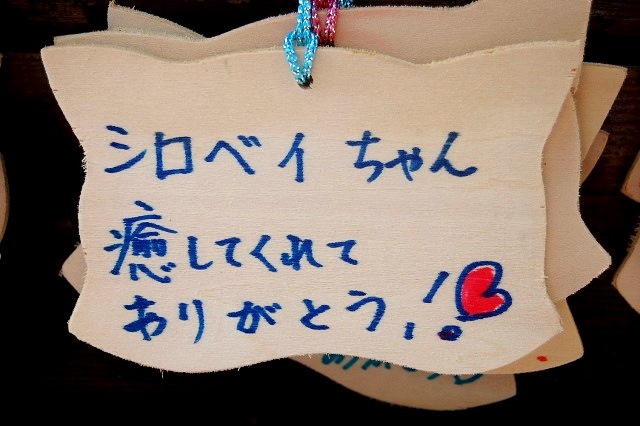 シロベイ ちゃん
癒してくれて
ありがとう!!